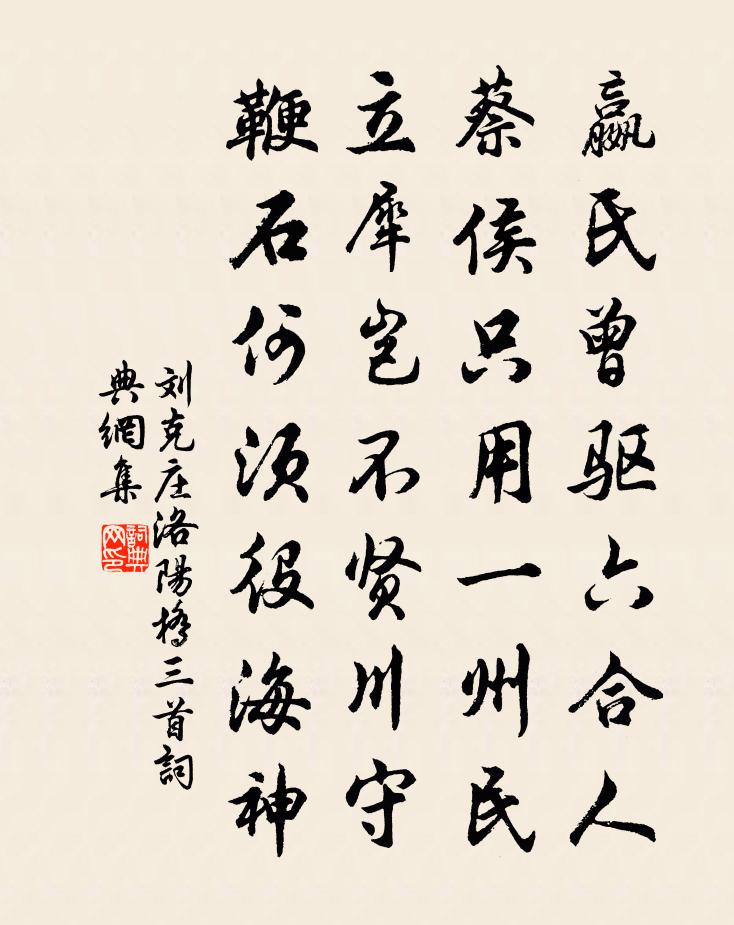 嬴氏曾驱六合人
蔡侯只用一州民
立犀岂不贤川守
鞭石何须役海神
刘克庄洛陽橋三首詞
典網集
詞典网印